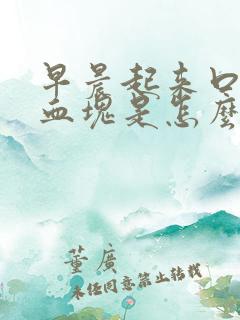 早晨起来口
血塊是怎麼
董廣
未经同意禁止转载